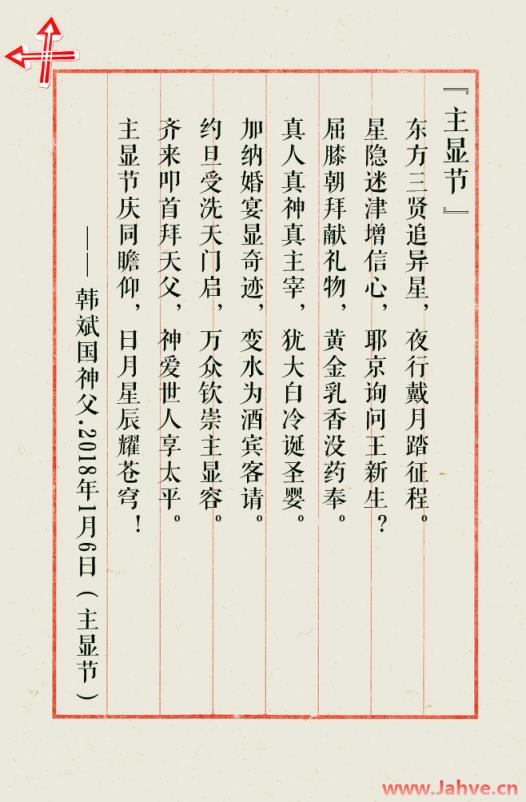 『主显节』
东方三贤追异星，夜行戴月踏征程。
星隐迷津增信心，耶京询问王新生？
屈膝朝拜献礼物，黄金乳香没药奉。
真人真神真主宰，犹大白冷诞圣婴。
加纳婚宴显奇迹，变水为酒宾客请。
约旦受洗天门启，万众钦崇主显容。
齐来叩首拜天父，神爱世人享太平。
主显节庆同瞻仰，日月星辰耀苍穹！
——韩斌国神父.2018年1月6日（主显节）
www.Jahve.cn